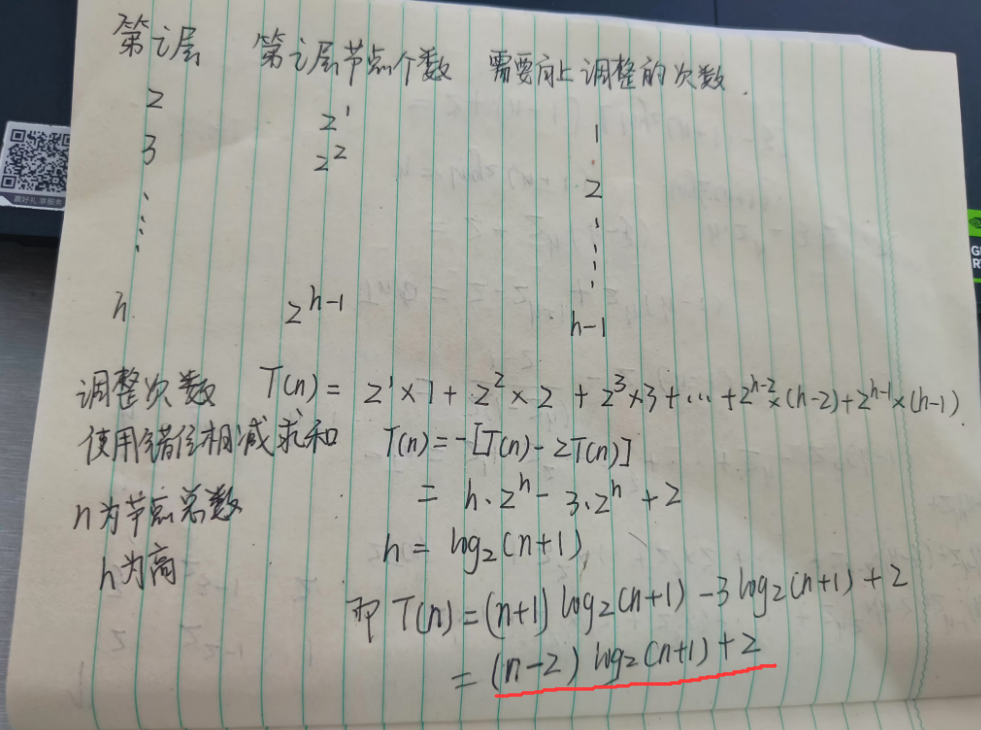 第i层 第i层节点个数 需要向上调整的次数.
2 2^1 1
3 2^2 2
h 2^{h-1} h-1
调整次数 T(n) = 2^1×1 + 2^2×2 + 2^3×3 + … + 2^{h-2}×(h-2) + 2^{h-1}×(h-1)
使用错位相减求和 T(n) = -[T(n) - 2T(n)]
= h·2^h - 3·2^h + 2
n为节点总数
h = log2(n+1)
h为高
即 T(n) = (n+1) log2(n+1) - 3 log2(n+1) + 2
= (n-2) log2(n+1) + 2